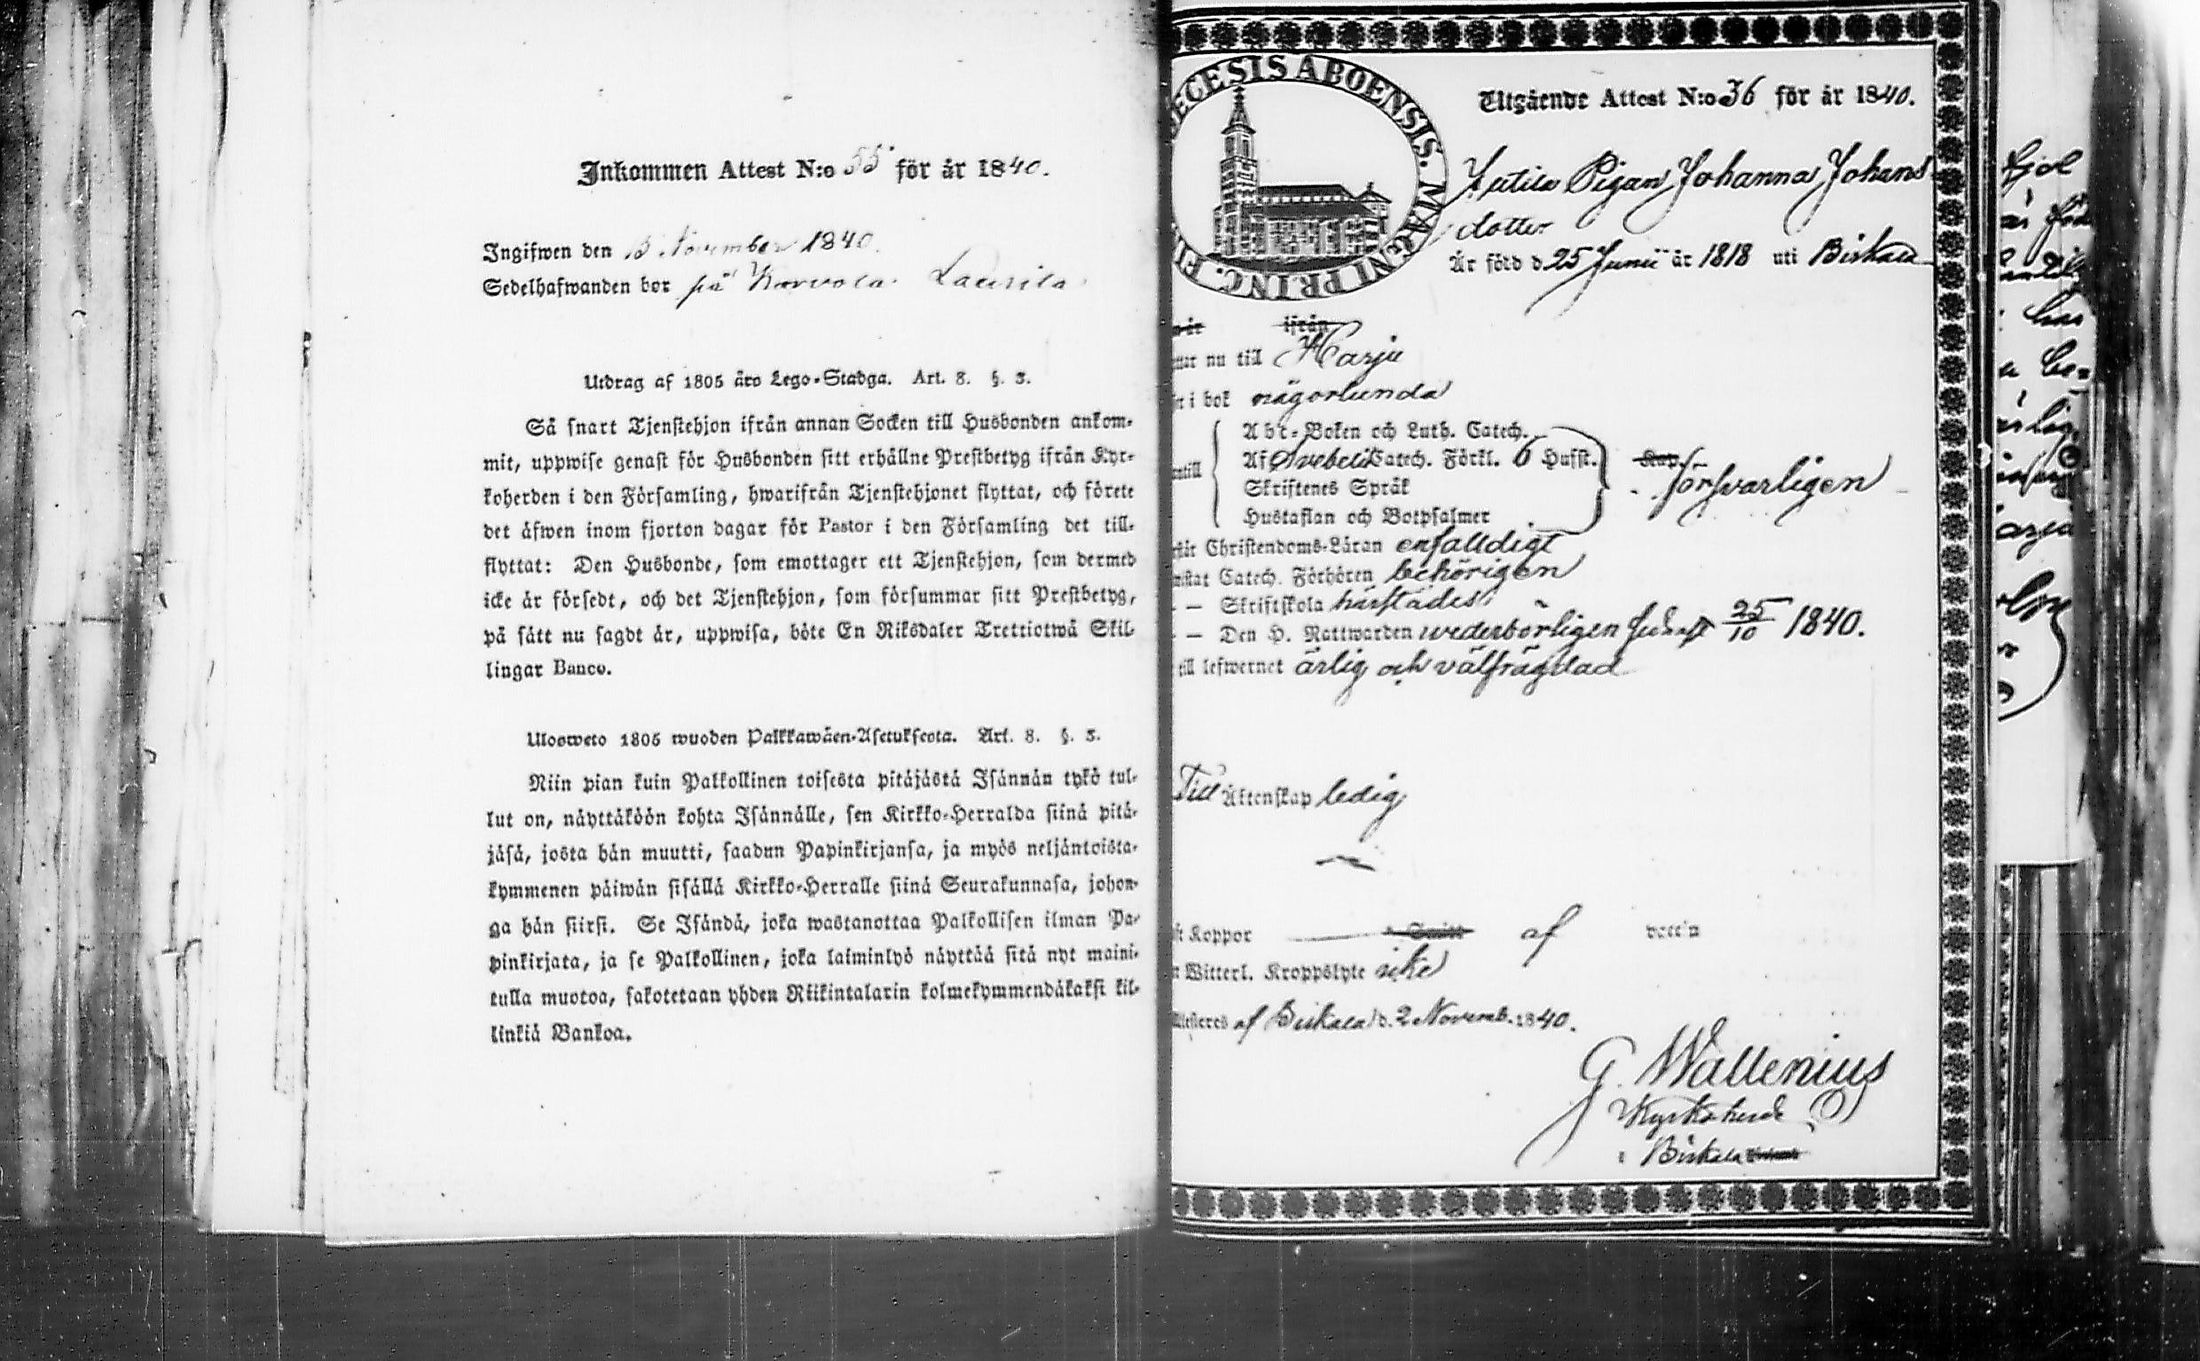 Inkommen Attest N:o 55 för år 1840.
Ingifwen den 13 November 1840.
Sedelhafwanden bor på Korvola Laurila
Utdrag af 1805 års Lego-Stadga. Art. 8. §. 3.
Så snart Tjenstehjon ifrån annan Socken till Husbonden ankom-
mit, uppwise genast för Husbonden sitt erhållne Prestbetyg ifrån Kyr-
koherden i den Församling, hwarifrån Tjenstehjonet flyttat, och förete
det äfwen inom fjorton dagar för Pastor i den Församling det till-
flyttat: Den Husbonde, som emottager ett Tjenstehjon, som dermed
icke är försedt, och det Tjenstehjon, som försummar sitt Prestbetyg,
på sätt nu sagdt är, uppwisa, böte En Riksdaler Trettiotwå Skil-
lingar Banco.
Ulosweto 1805 wuoden Palkkawäen-Asetuksesta. Art. 8. §. 3.
Niin pian kuin Palkollinen toisesta pitäjästä Isännän tykö tul-
lut on, näyttäköön kohta Isännälle, sen Kirkko-Herralda siinä pitä-
jäsä, josta hän muutti, saadun Papinkirjansa, ja myös neljäntoista-
kymmenen päiwän sisällä Kirkko-Herralle siinä Seurakunnasa, johon-
ga hän siirsi. Se Isändä, joka wastanottaa Palkollisen ilman Pa-
pinkirjata, ja se Palkollinen, joka laiminlyö näyttää sitä nyt maini-
tulla muotoa, sakotetaan yhden Riikintalarin kolmekymmendäkaksi kil-
linkiä Bankoa.
DIECESIS ABOENSIS. MAGNI PRINC. FI
Utgående Attest N:o 36 för år 1840.
Pigan Johanna Johans
dotter
Är född d 25 Junii år 1818 uti Birkala
ifrån
nu till Harju
i bok någorlunda
Abc-Boken och Luth. Catech.
Af Svebelii Catech. Förkl. 6 Hufst.
Skriftenes Språk
Hustaflan och Botpsalmer
försvarligen
Christendoms-Läran enfaldigt
Catech. Förhören behörigen
— Skriftskola härstädes
— Den H. Nattwarden wederbörligen senast 25/10 1840.
till lefwernet ärlig och välfrägdad
Till Äktenskap ledig
Koppor af
Witterl. Kroppslyte icke
af Birkala d. 2 Novemb. 1840.
G. Wallenius
Kyrkoherde
i Birkala